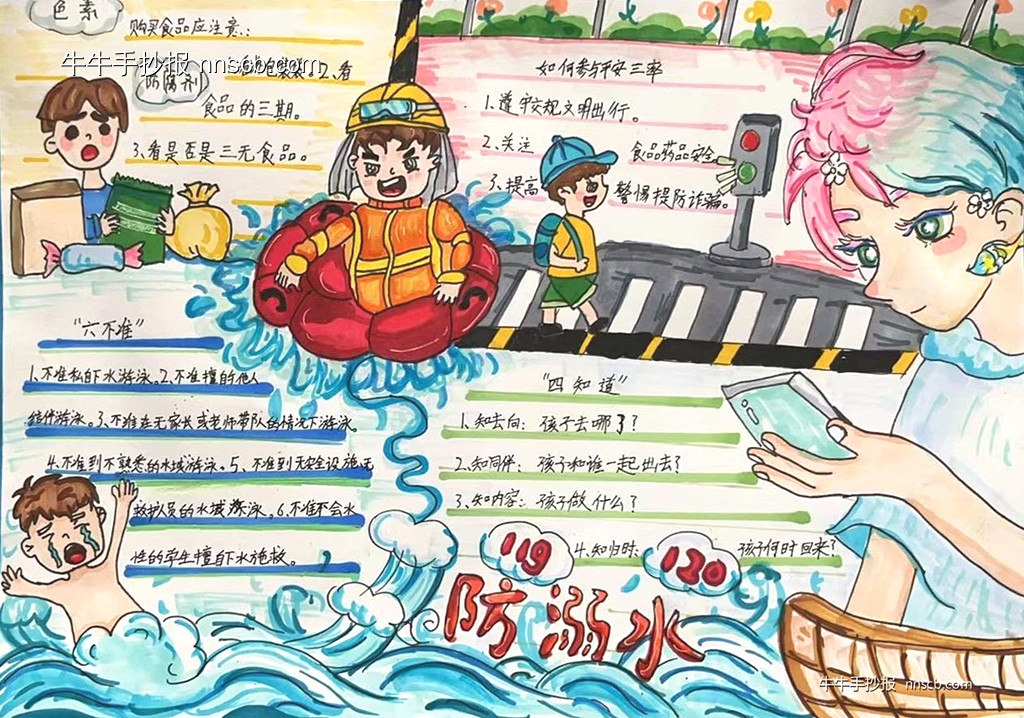 色素
购买食品应注意:
牛牛手抄报 nnscb.com
防腐剂
2、看
食品的三期。
3、看是否是三无食品。
如何参与平安三率
1、遵守交规文明出行。
2、关注 食品药品安全
3、提高 警惕提防诈骗。
“六不准”
1、不准私自下水游泳。2、不准擅自他人
结伴游泳。3、不准在无家长或老师带队的情况下游泳。
4、不准到不熟悉的水域游泳。5、不准到无安全设施、无
救护人员的水域游泳。6、不准不会水
性的学生擅自下水施救。
“四知道”
1、知去向:孩子去哪了?
2、知同伴:孩子和谁一起出去?
3、知内容:孩子做什么?
119
4、知归时:
120
孩子何时回来?
防溺水
牛牛手抄报 nnscb.com